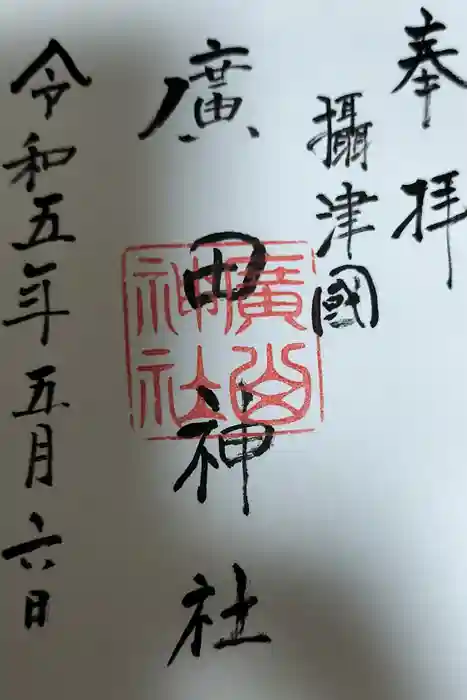 奉拝
攝津國
廣田神社
廣田神社
令和五年五月六日